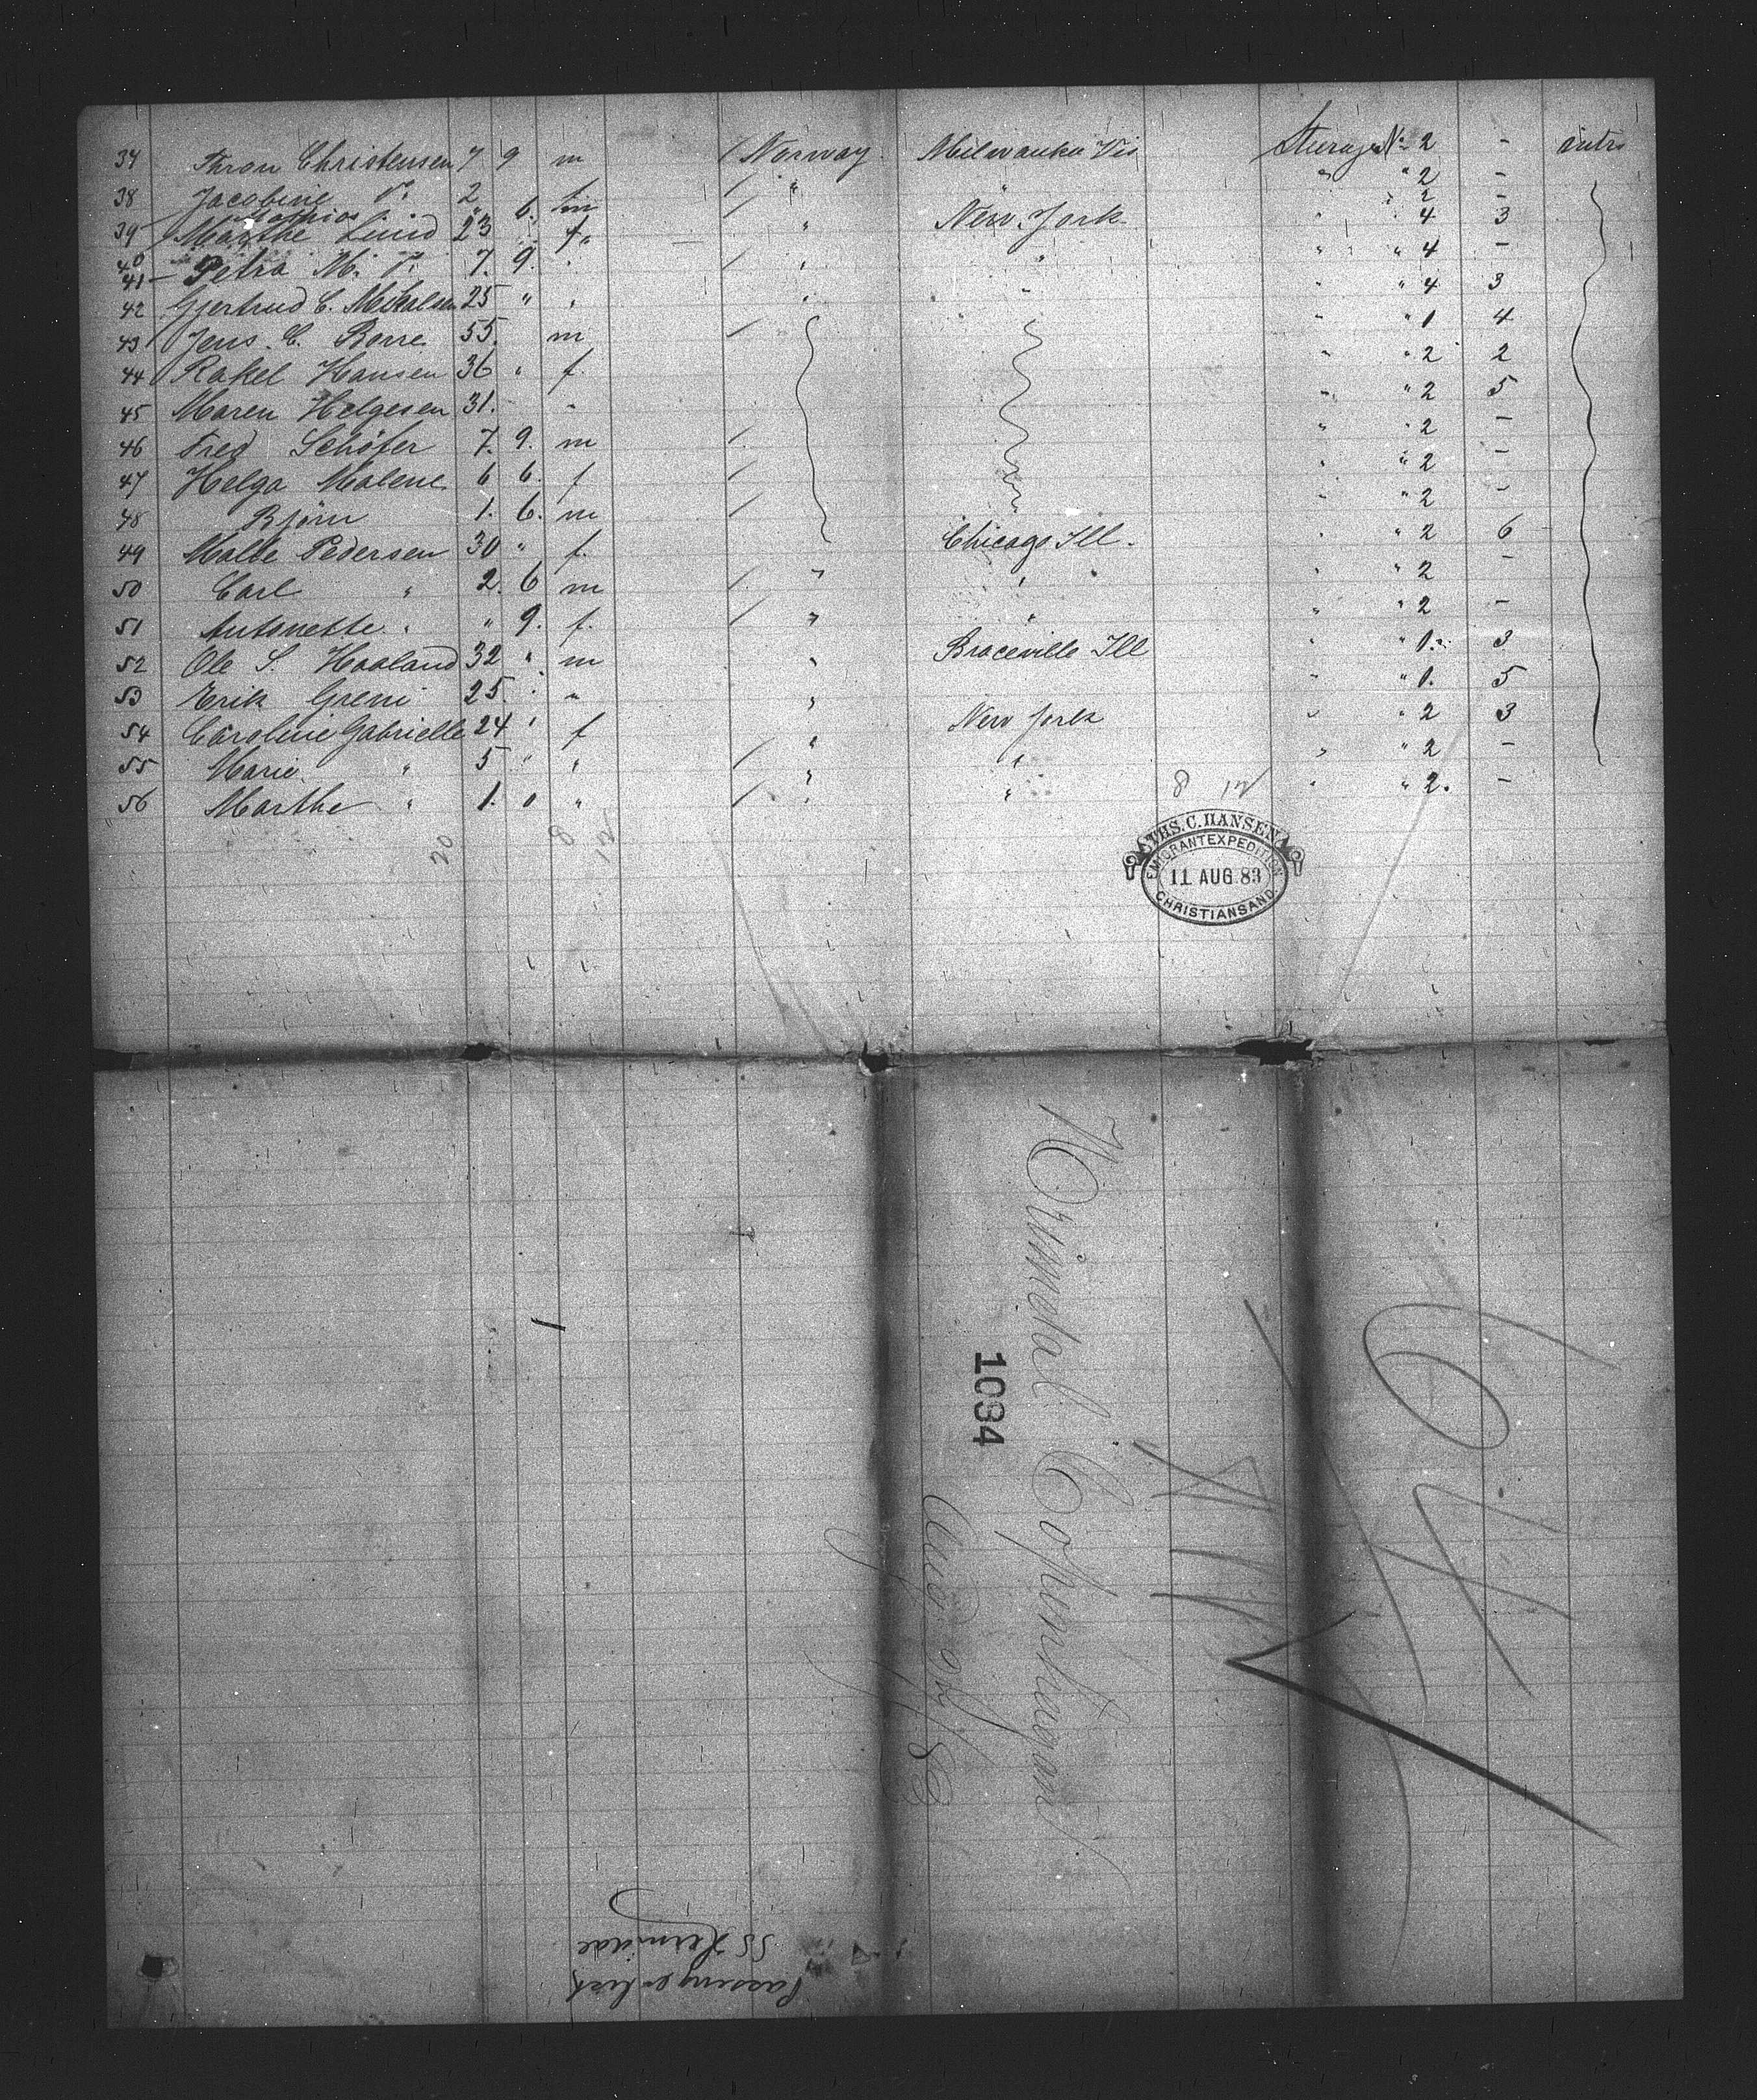 37 Thron Christensen 7 9 m / Norway Milwaukee Vis Steerage No 2 - intr
38 Jacobine " 2 " f / " " " " 2 -
Mathias " 6. m / " 2 -
39 Marthe Lund 23 " f. " New York " " 4 3
40
41 - Petra M. " 7. 9. " / " " " " 4 -
42 Gjertrud C. Mikalsen 25 " " " " " " 4 3
43 Jens. C. Borre 55. m / " " 1 4
44 Rakel Hansen 36 " f. " " 2 2
45 Maren Helgesen 31. - " " " 2 5
46 Fred Schöfer 7. 9. m / " " 2 -
47 Helga Malene 6 6. f / " " 2 -
48 Björn 1. 6. m / " " 2 -
49 Malle Pedersen 30 " f. Chicago Ill. " " 2 6
50 Carl " 2. 6 m / " " " " 2 -
51 Antonette " " 9. f. / " " " " 2 -
52 Ole S. Haaland 32 " m " Braceville Ill " " 1. 3
53 Erik Greni 25. " " " " " 1. 5
54 Caroline Gabrielle 24 " f " New York " " 2 3
55 Marie " 5 " " / " " " " 2 -
56 Marthe " 1. 0 " / " " " " 2. -
8 12
20 8 12
THS. C. HANSEN
EMIGRANTEXPEDITION
11 AUG. 83
CHRISTIANSAND
Copenhagen
1084
Aug 31/83
Passenger list
SS